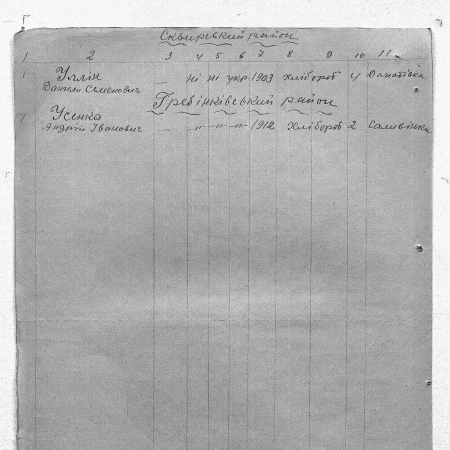 Сквирський район
1 2 3 4 5 6 7 8 9 10 11
1 Уллін — ні ні укр 1909 хлібороб 4
Данило Семенович
Гребінківський район
1 Усенко — „ „ „ 1912 хлібороб 2 Саливінка
Андрій Іванович